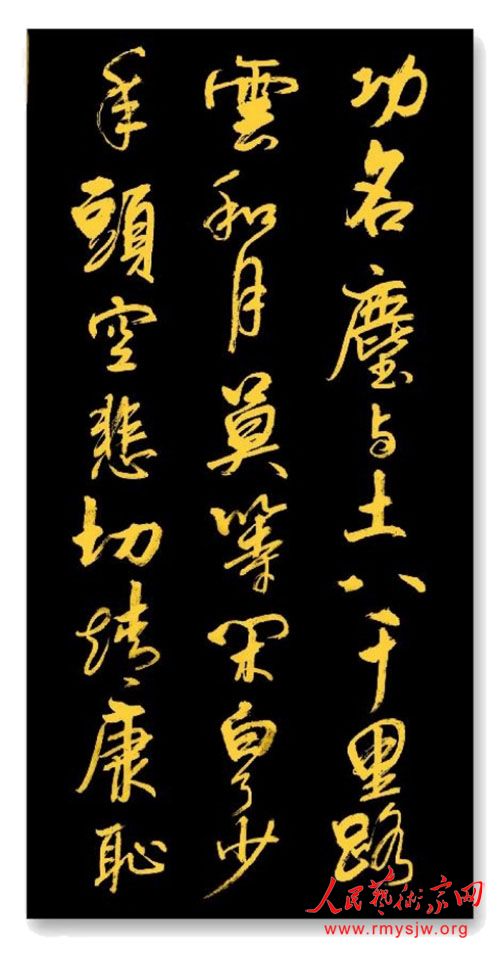 功名塵与土八千里路
雲和月莫等閑白了少
年頭空悲切靖康恥
人民藝術家网
www.rmysjw.org